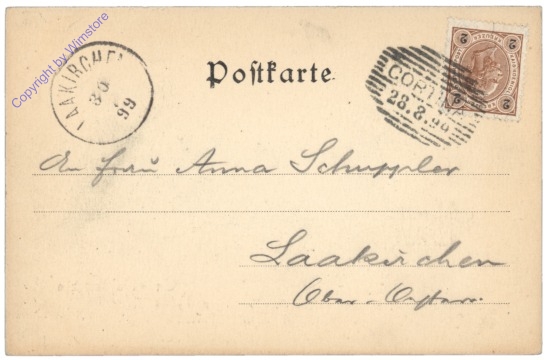 Copyright by Wimstore
LAAKIRCHEN
30
8
99
Postkarte
CORTINA
28.8.99
2 2
2 2
An Frau Anna Schuppler
Laakirchen
Ober-Oesterr.